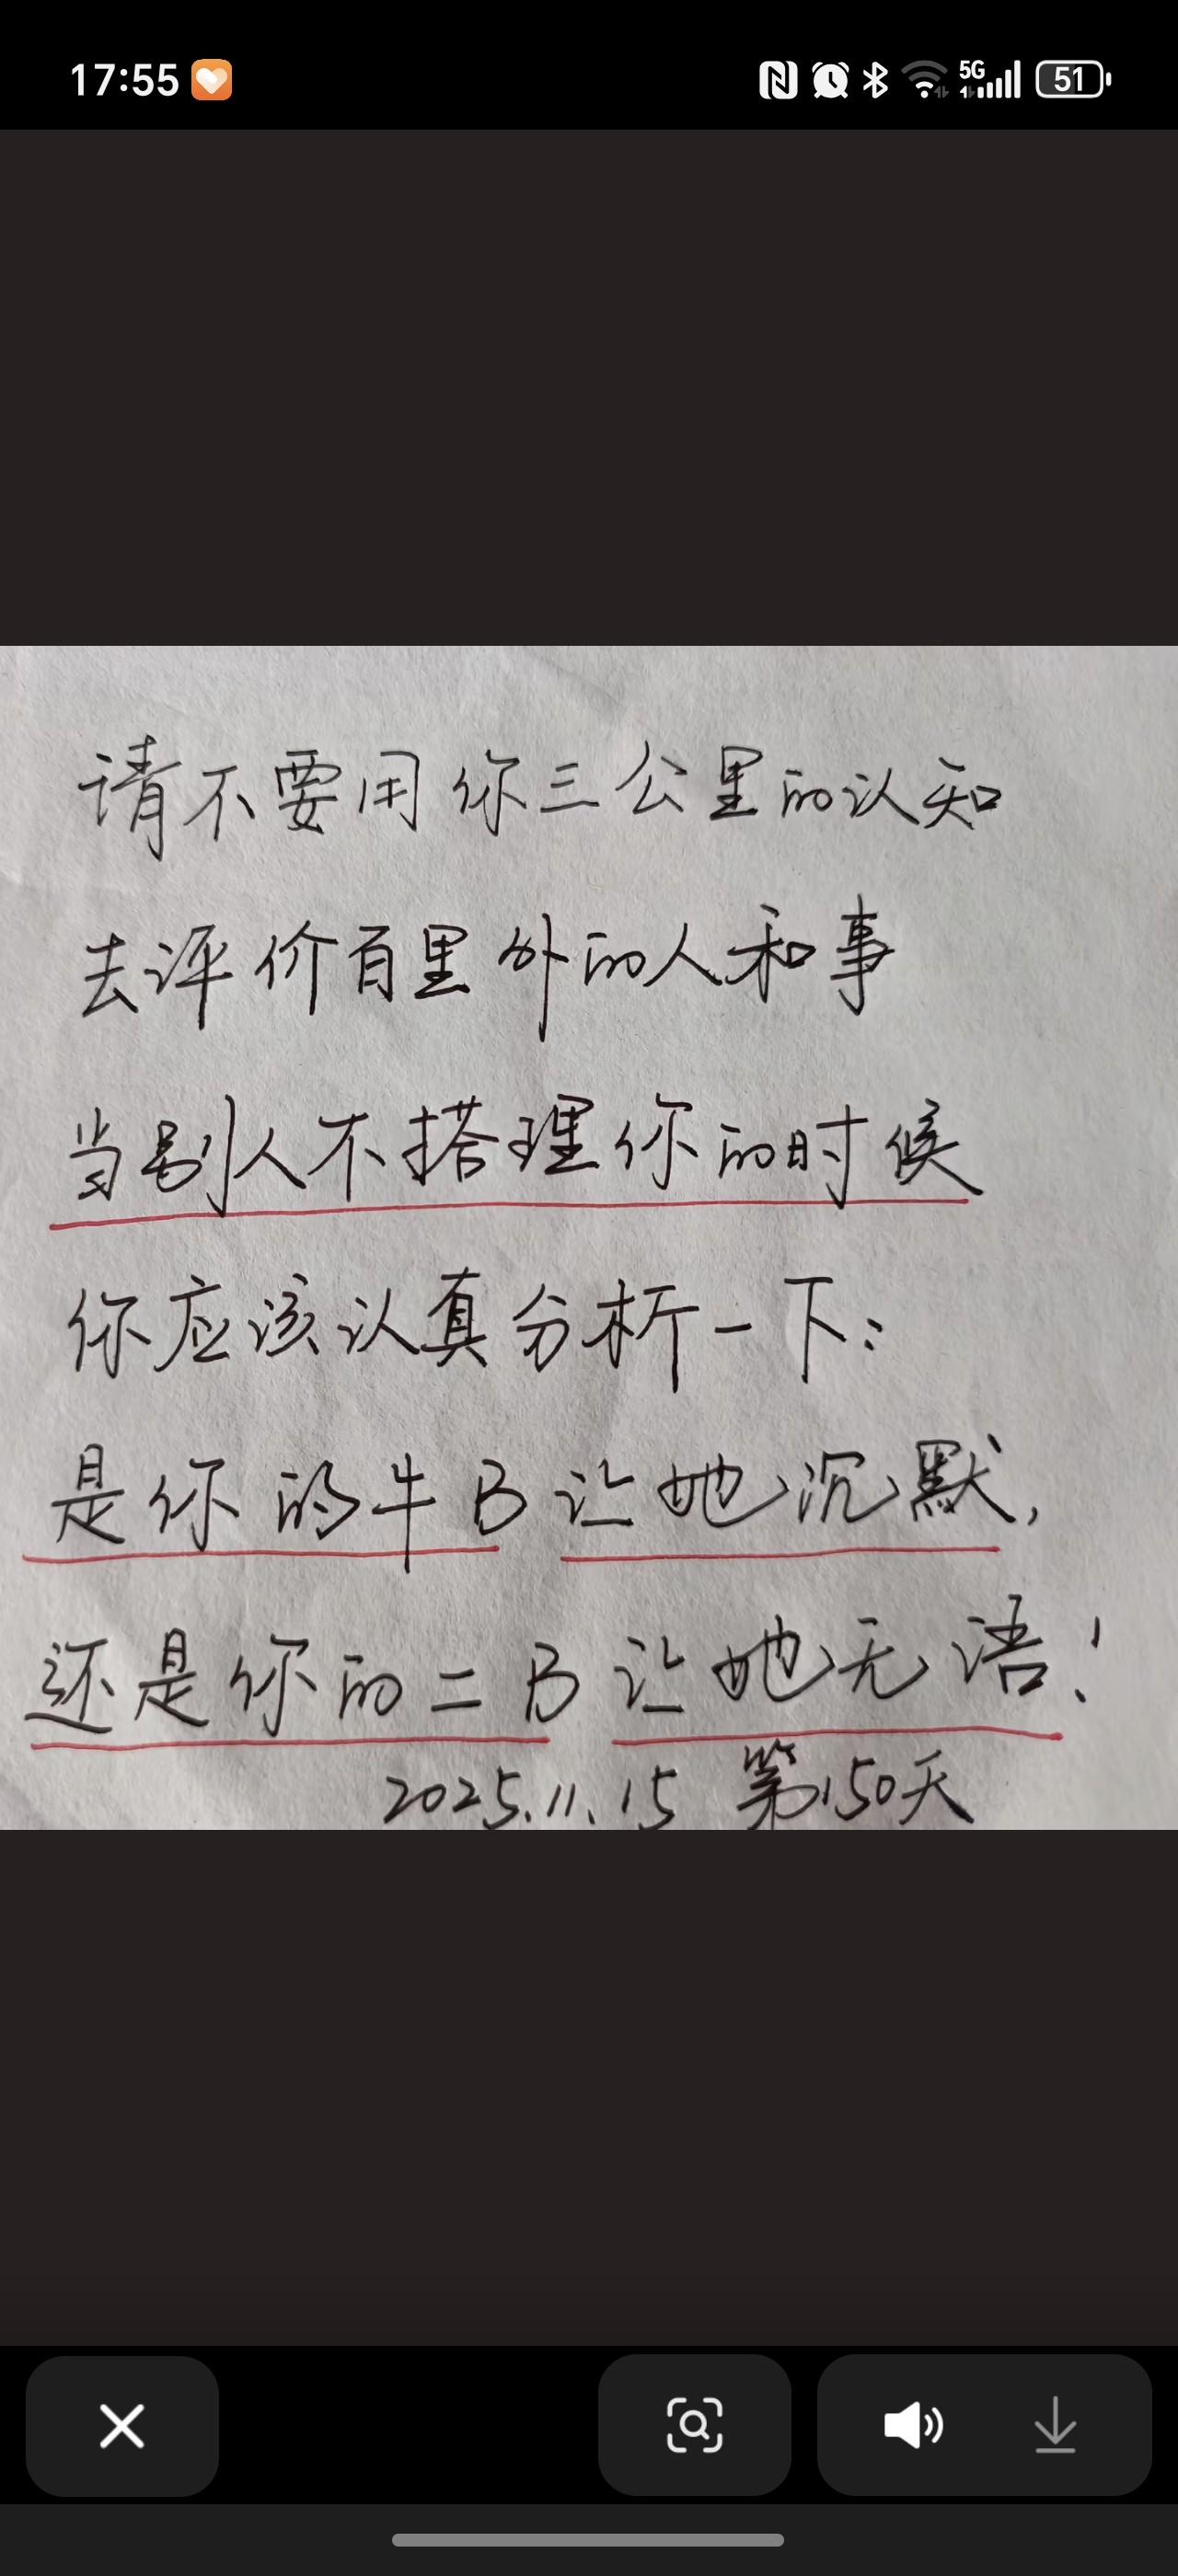 17:55
5G
51
请不要用你三公里的认知
去评价百里外的人和事
当别人不搭理你的时候
你应该认真分析一下:
是你的牛B让她沉默,
还是你的二B让她无语!
2025.11.15 第150天